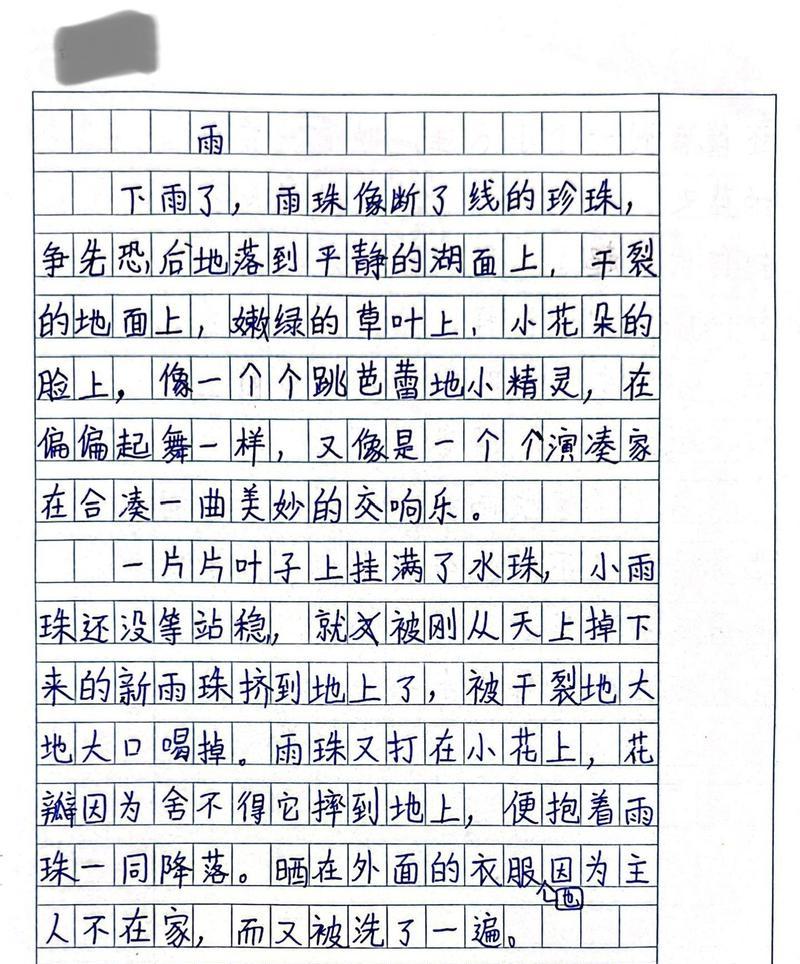 雨
下雨了，雨珠像断了线的珍珠，
争先恐后地落到平静的湖面上，干裂
的地面上，嫩绿的草叶上，小花朵的
脸上，像一个个跳芭蕾地小精灵，在
偏偏起舞一样，又像是一个个演凑家
在合凑一曲美妙的交响乐。
一片片叶子上挂满了水珠，小雨
珠还没等站稳，就又被刚从天上掉下
来的新雨珠挤到地上了，被干裂地大
地大口喝掉。雨珠又打在小花上，花
瓣因为舍不得它摔到地上，便抱着雨
珠一同降落。晒在外面的衣服也因为主
人不在家，而又被洗了一遍。